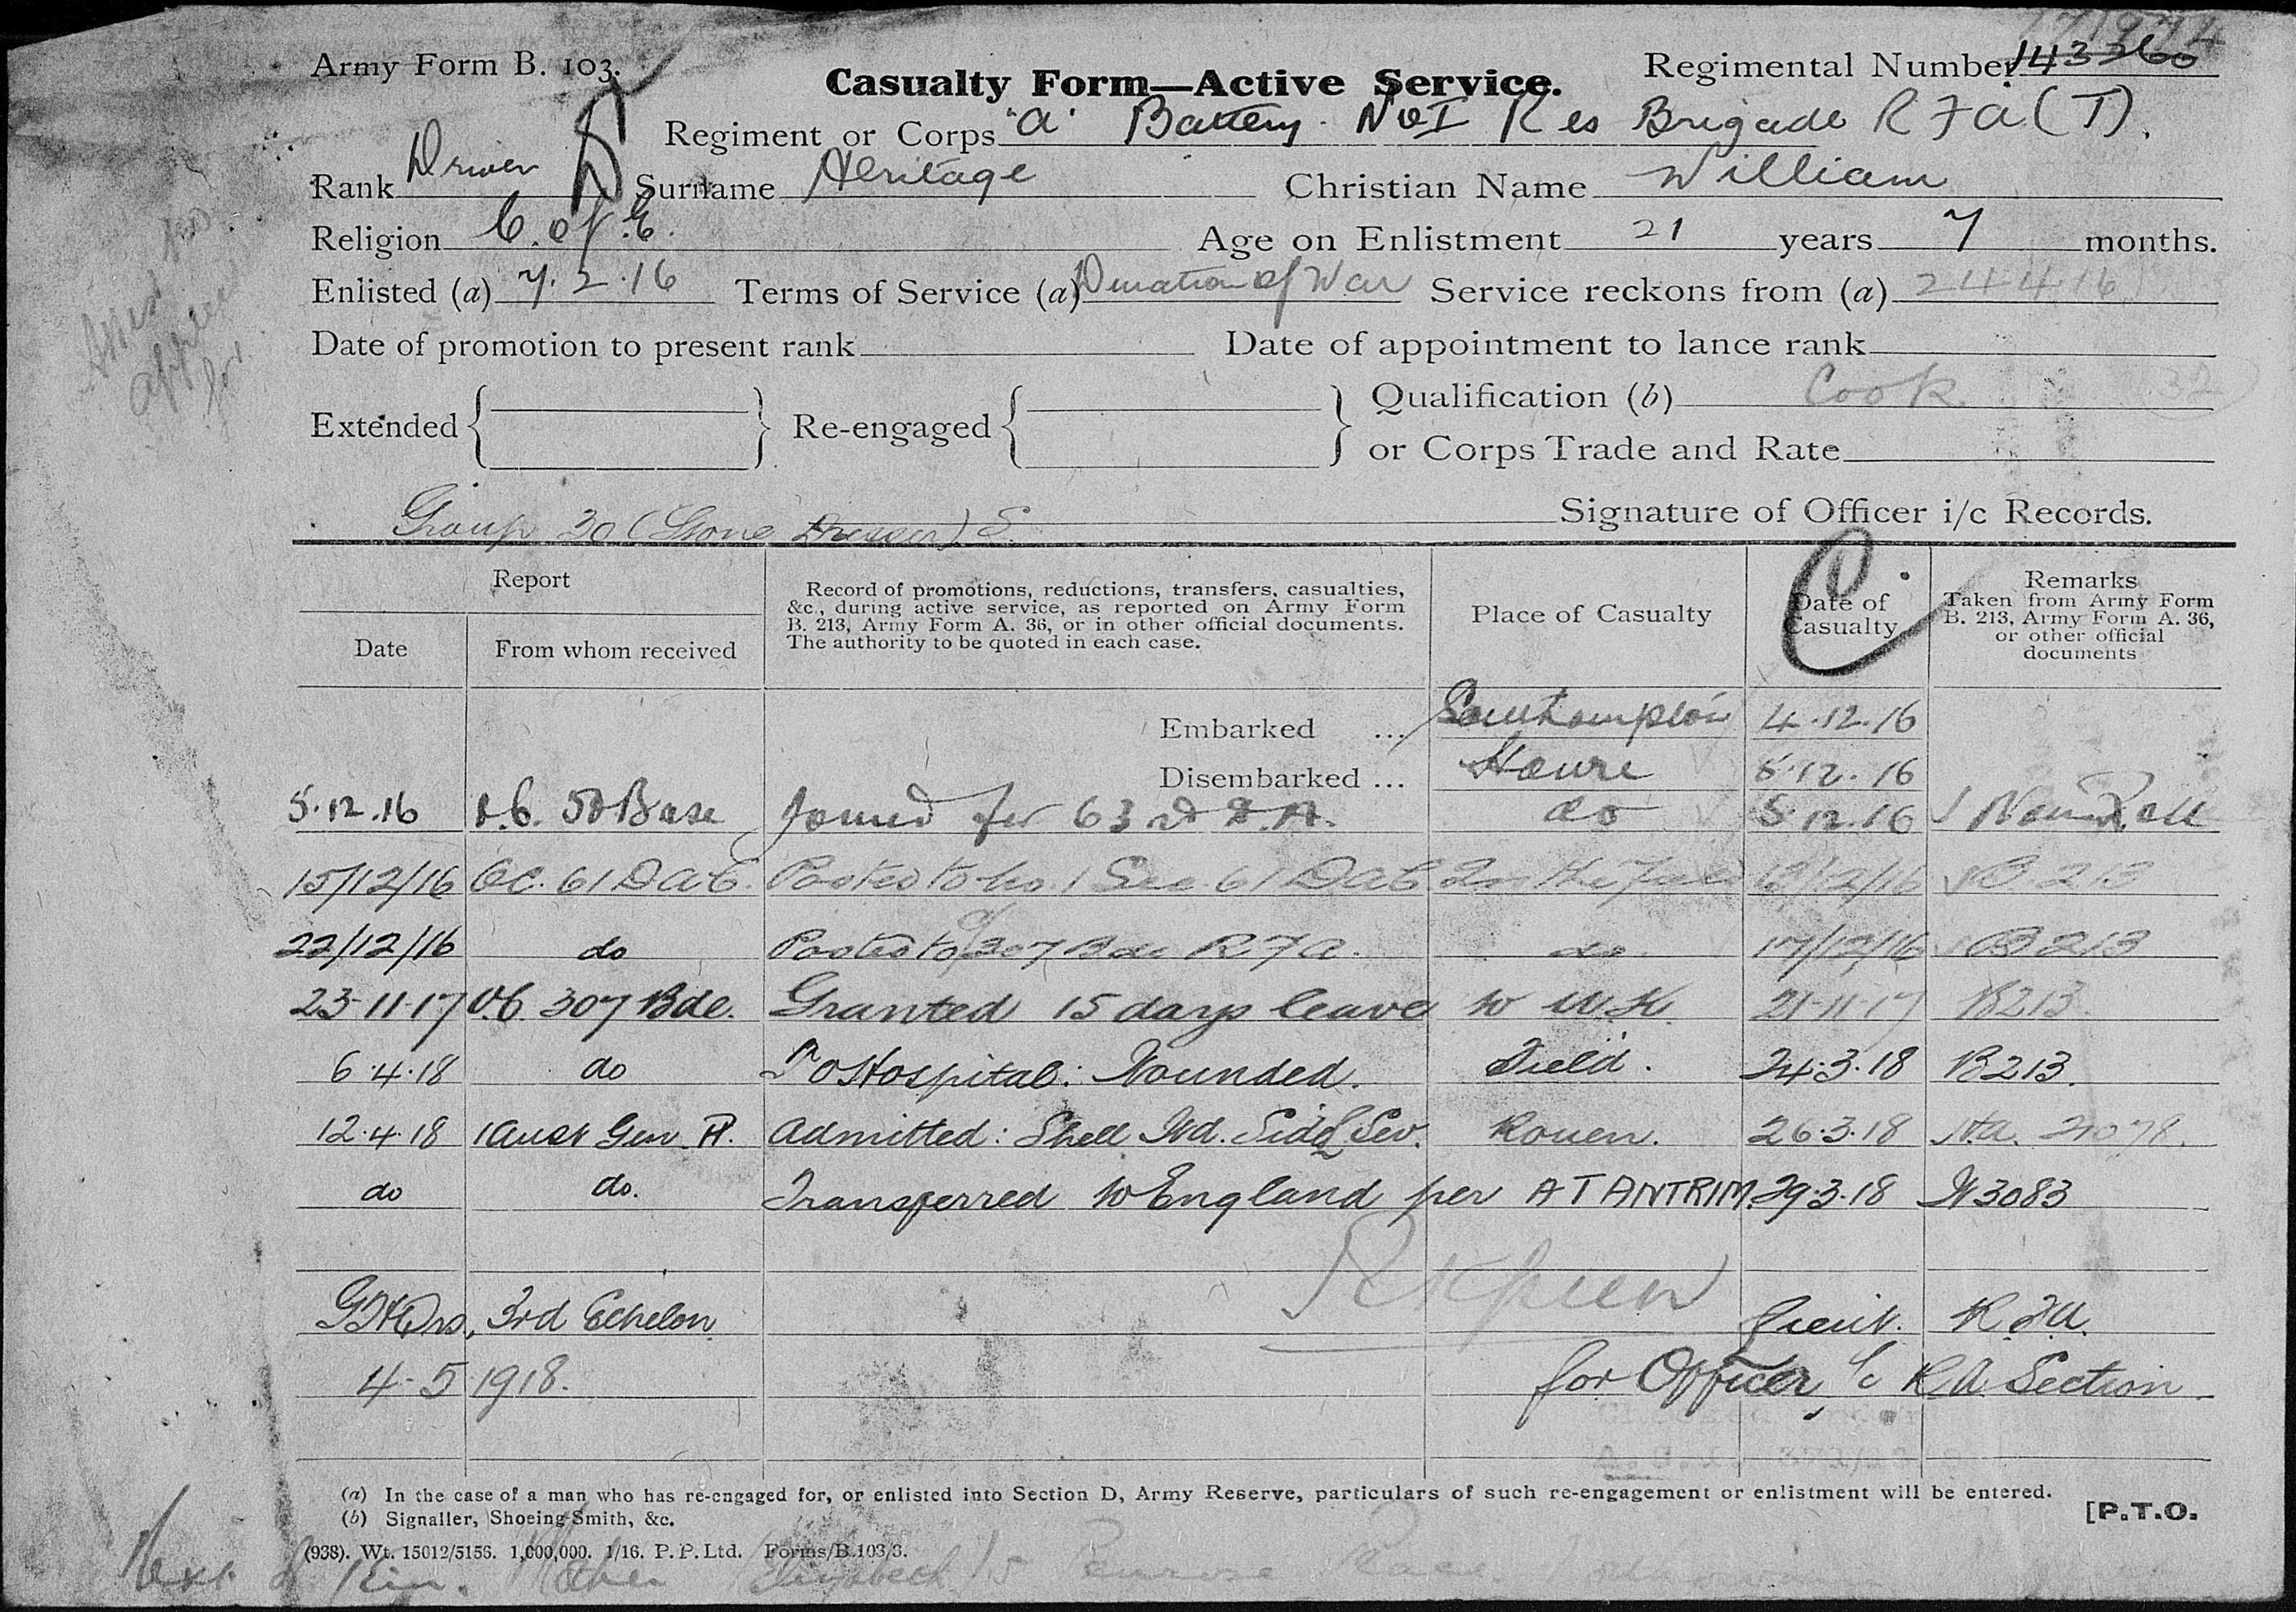 Army Form B. 103.
Casualty Form—Active Service.
Regimental Number
Regiment or Corps "A" Battery. No I Res Brigade R F A (T).
Rank Driver Surname Heritage Christian Name William
Religion C. of E. Age on Enlistment 21 years 7 months.
Enlisted (a) 7.2.16 Terms of Service (a) Duration of War Service reckons from (a) 24.4.16
Date of promotion to present rank Date of appointment to lance rank
Extended Re-engaged Qualification (b) Cook
or Corps Trade and Rate
Signature of Officer i/c Records.
Group 30 (Stone Dresser) S.
Report
Date From whom received
Record of promotions, reductions, transfers, casualties,
&c., during active service, as reported on Army Form
B. 213, Army Form A. 36, or in other official documents.
The authority to be quoted in each case.
Place of Casualty
Date of
Casualty
Remarks
Taken from Army Form
B. 213, Army Form A. 36,
or other official
documents
Embarked ... Southampton 4.12.16
Disembarked ... Havre 5.12.16
5.12.16 Base Joined for 63rd D.A. do 5.12.16
15/12/16 OC. 61 DAC. Posted to No. 1 Sec. 61 DAC In the Field B 213
22/12/16 do Posted to 307 Bde RFA. do 17/12/16 B 213
23-11-17 O.C. 307 Bde. Granted 15 days leave to U.K. 21-11-17 B213.
6.4.18 do To Hospital: Wounded. Field. 24.3.18 B213.
12.4.18 1 Aust Gen H. Admitted: Shell Wd. Side L Sev. Rouen. 26.3.18
do do. Transferred to England per AT ANTRIM. 29.3.18 W3083
GHQrs, 3rd Echelon Lieut. R.F.A.
4-5 1918. for Officer i/c RA Section
(a) In the case of a man who has re-engaged for, or enlisted into Section D, Army Reserve, particulars of such re-engagement or enlistment will be entered.
(b) Signaller, Shoeing-Smith, &c.
[P.T.O.
(938). Wt. 15012/5156. 1,000,000. 1/16. P. P. Ltd. Forms/B.103/3.
Next of Kin. Mother Elizabeth 15 Penrose